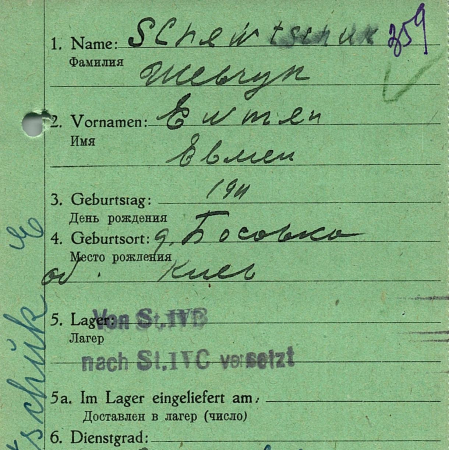 359
1. Name: Schewtschuk
Фамилия
Шевчук
2. Vornamen: Ewmen
Имя
Евмен
3. Geburtstag: 1911
День рождения
4. Geburtsort: д. Босовка
Место рождения
об. Киев
5. Lager: Von St.IVB
Лагер
nach St.IVC versetzt
5a. Im Lager eingeliefert am:
Доставлен в лагер (число)
6. Dienstgrad:
tschuk E